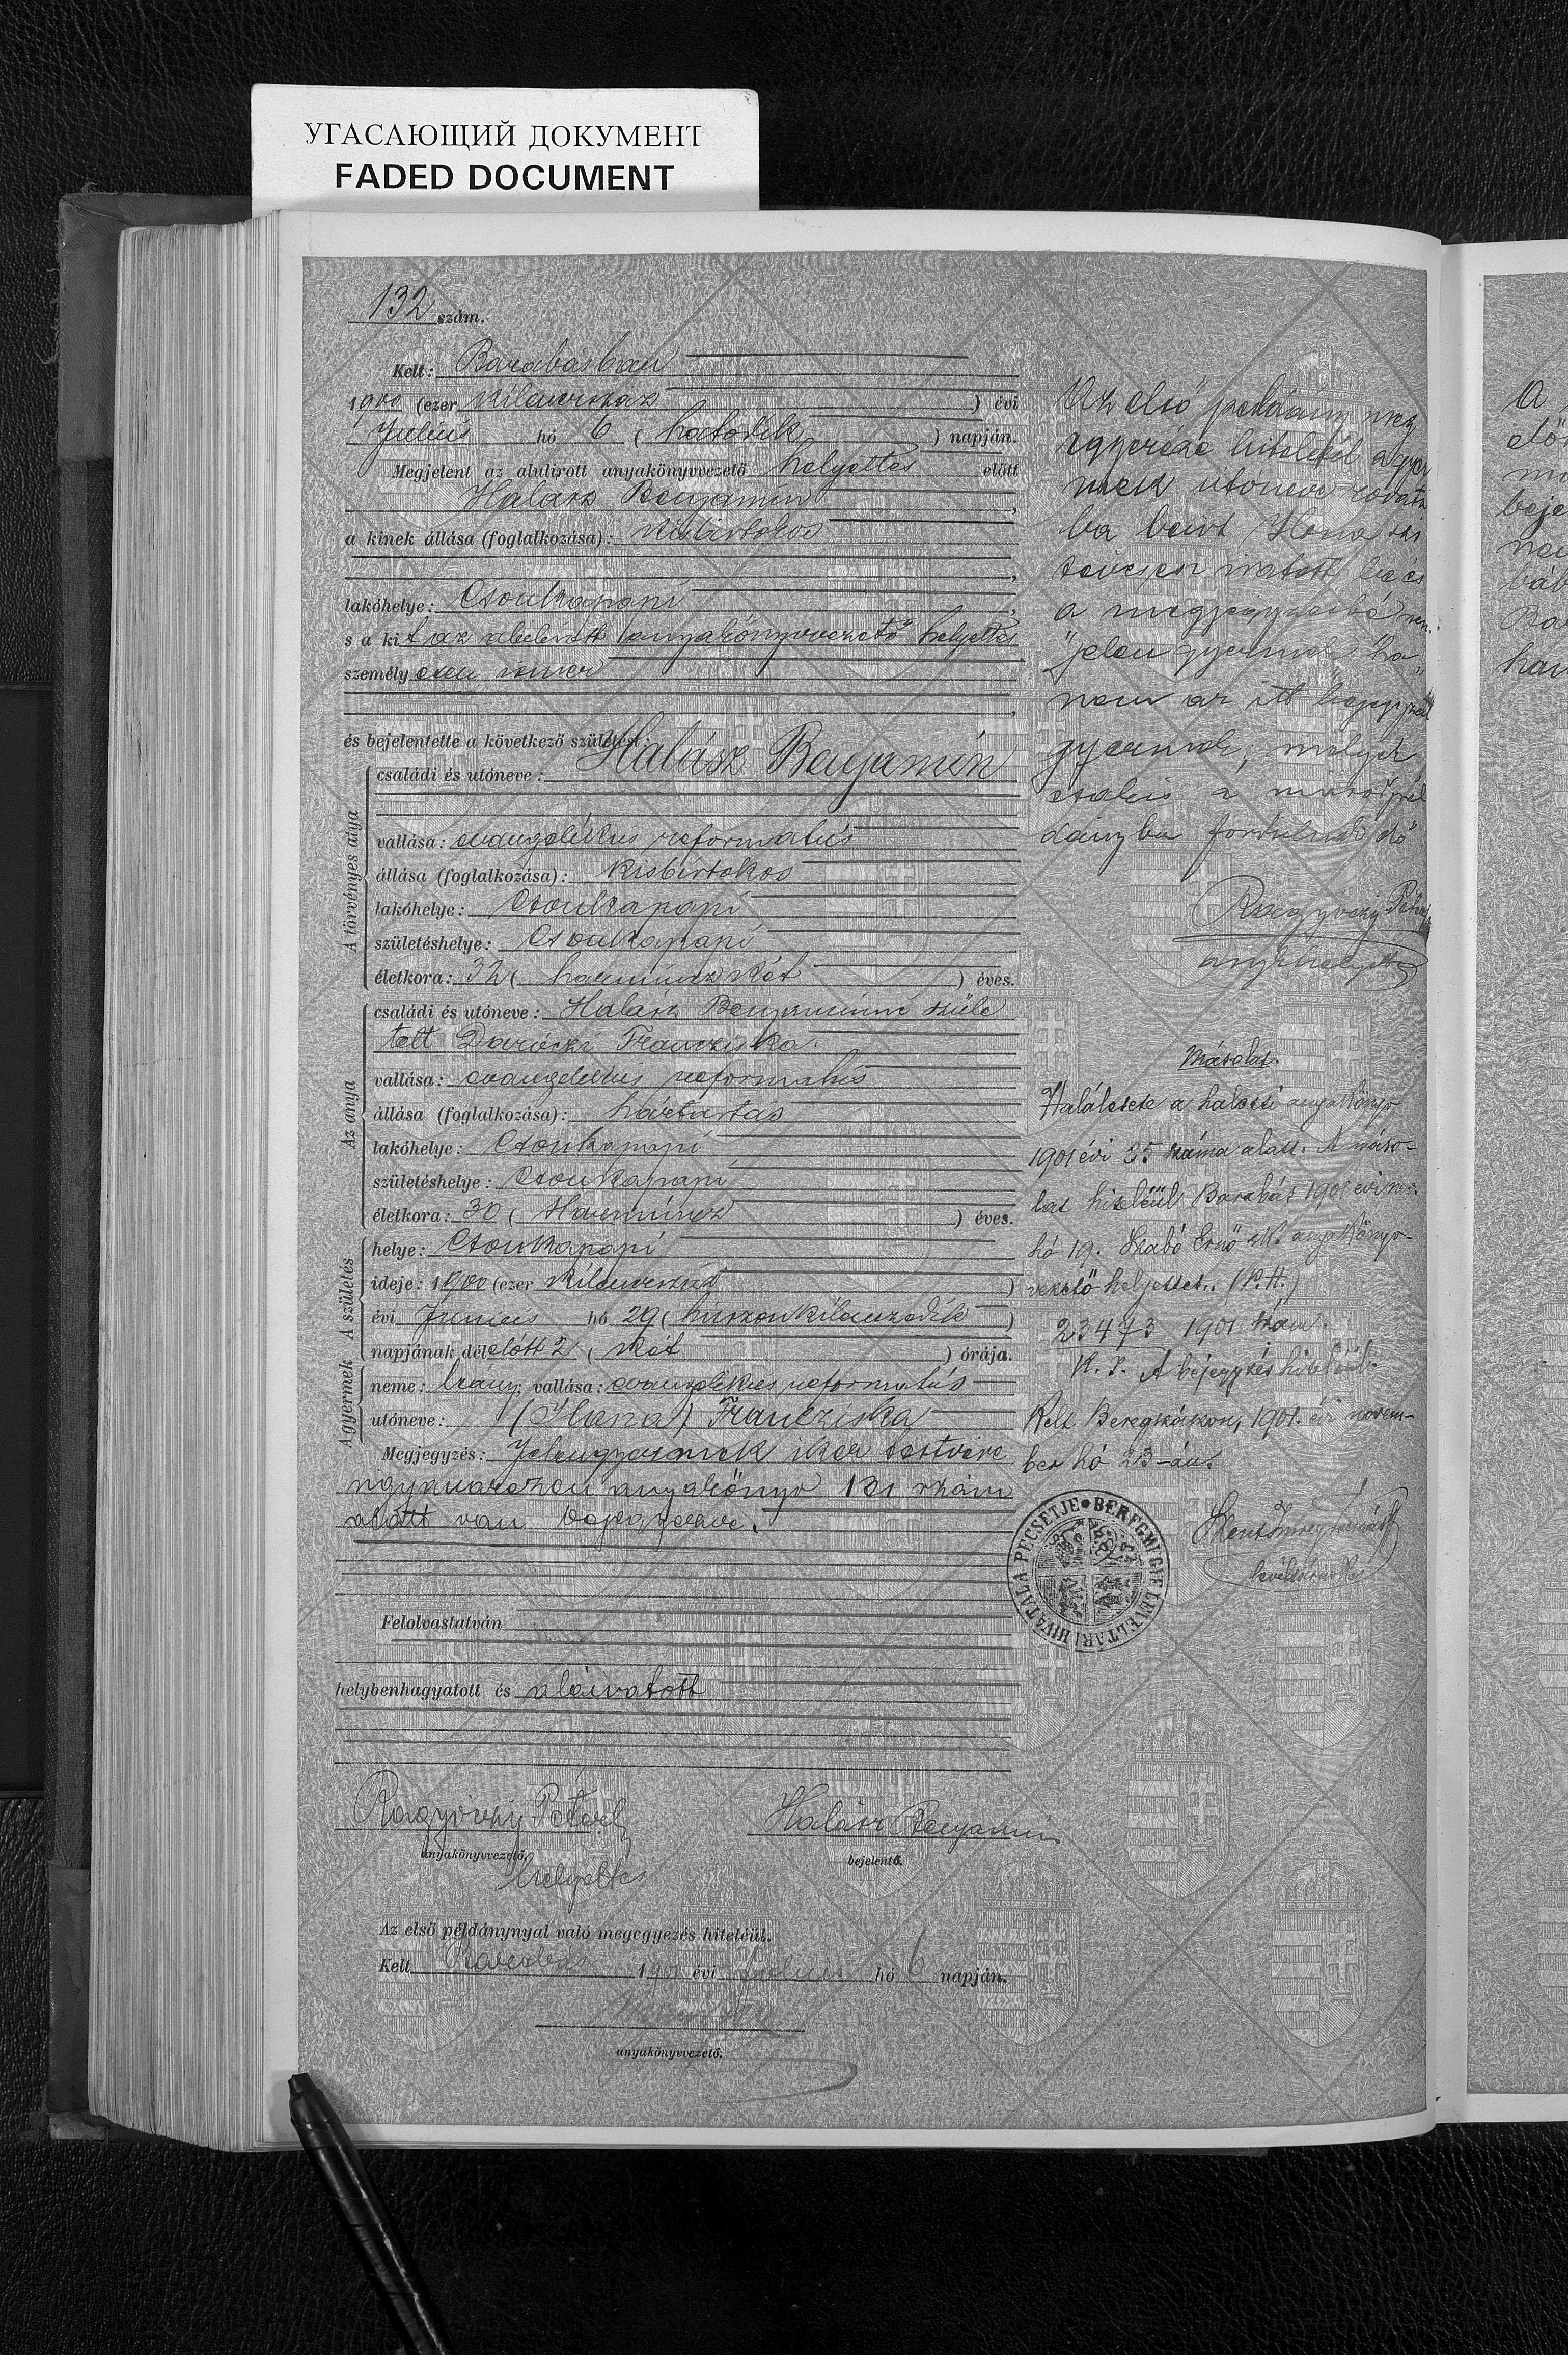 УГАСАЮЩИЙ ДОКУМЕНТ
FADED DOCUMENT
132 szám.
Kelt: Barabásban
1900 (ezer kilencszáz ) évi
Julius hó 6 ( hatodik ) napján.
Megjelent az alulirott anyakönyvvezető helyettes előtt
Halász Benjamin ,
a kinek állása (foglalkozása): kisbirtokos
,
lakóhelye: Csonkapapi ,
s a kit az alulirott anyakönyvvezető helyettes
személyesen ismer
,
és bejelentette a következő születést:
A törvényes atya
családi és utóneve: Halász Benjamin
vallása: evangelikus reformatus
állása (foglalkozása): kisbirtokos
lakóhelye: Csonkapapi
születéshelye: Csonkapapi
életkora: 32 ( harmincz két ) éves.
Az anya
családi és utóneve: Halász Benjaminné szüle
tett Daróczi Francziska.
vallása: evangelikus reformatus
állása (foglalkozása): háztartás
lakóhelye: Csonkapapi
születéshelye: Csonkapapi
életkora: 30 ( Harmincz ) éves.
A születés
helye: Csonkapapi
ideje: 1900 (ezer kilencszáz )
évi Junius hó 29 ( huszonkilenczedik )
napjának délelőtt 2 ( két ) órája.
A gyermek
neme: leány; vallása: evangelikus reformatus
utóneve: (Ilona) Francziska
Megjegyzés: Jelengyermek iker testvére
ugyanazon anyakönyv 131 szám
alatt van bejegyezve.
Felolvastatván
helybenhagyatott és aláiratott
Ragyóczy Péter
anyakönyvvezető,
helyettes
Halász Benjamin
bejelentő.
Az első példánynyal való megegyezés hiteléül.
Kelt Barabás 1900 évi Julius hó 6 napján.
anyakönyvvezető.
Az első példány meg
egyezése hiteléül a gyer
mek utóneve rovatá
ba beirt Ilona tör
a megjegyzésbe nem
"jelen gyermek" ha
nem az itt bejegyzett
gyermek; melyek
csakis a másodpél
dányba fordulnak elő
Ragyóczy Péter
anykhelyettes
Másolat.
Halálesete a halotti anyakönyv
1901 évi 35 száma alatt. A máso-
lat hiteléül Barabás 1901 évi nov.
hó 19. Szabó Ernő sk. anyakönyv-
vezető helyettes. (P.H.)
23473 1901 szám.
K. r. A bejegyzés hiteléül.
Kelt Beregszászon, 1901. évi novem-
ber hó 23-án.
Szentimrey Tamás
levéltárnok
BEREGMEGYE LEVÉLTÁRI HIVATALA PECSÉTJE